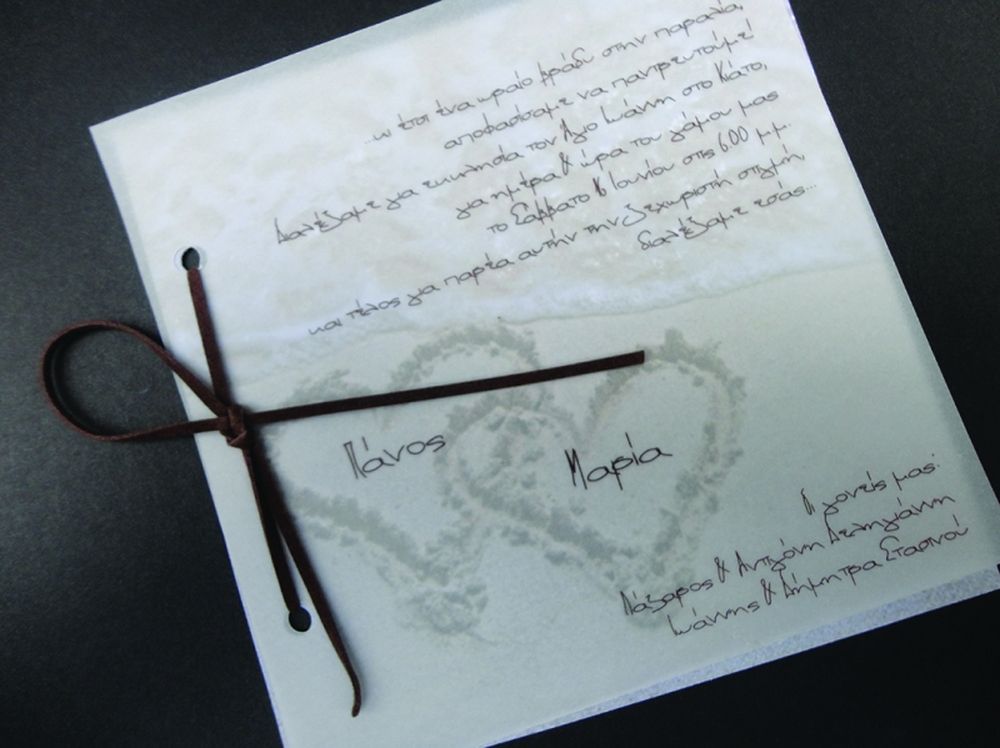 ...κι έτσι ένα ωραίο βράδυ στην παραλία,
αποφασίσαμε να παντρευτούμε!
Διαλέξαμε για εκκλησία τον Άγιο Ιωάννη στο Κιάτο,
για ημέρα & ώρα του γάμου μας
το Σάββατο 16 Ιουνίου στις 6.00 μμ.
και τέλος για παρέα αυτήν την ξεχωριστή στιγμή,
διαλέξαμε εσάς...
Πάνος
Μαρία
Οι γονείς μας:
Λάζαρος & Αντιγόνη Δεληγιάννη
Ιωάννης & Δήμητρα Στασινού